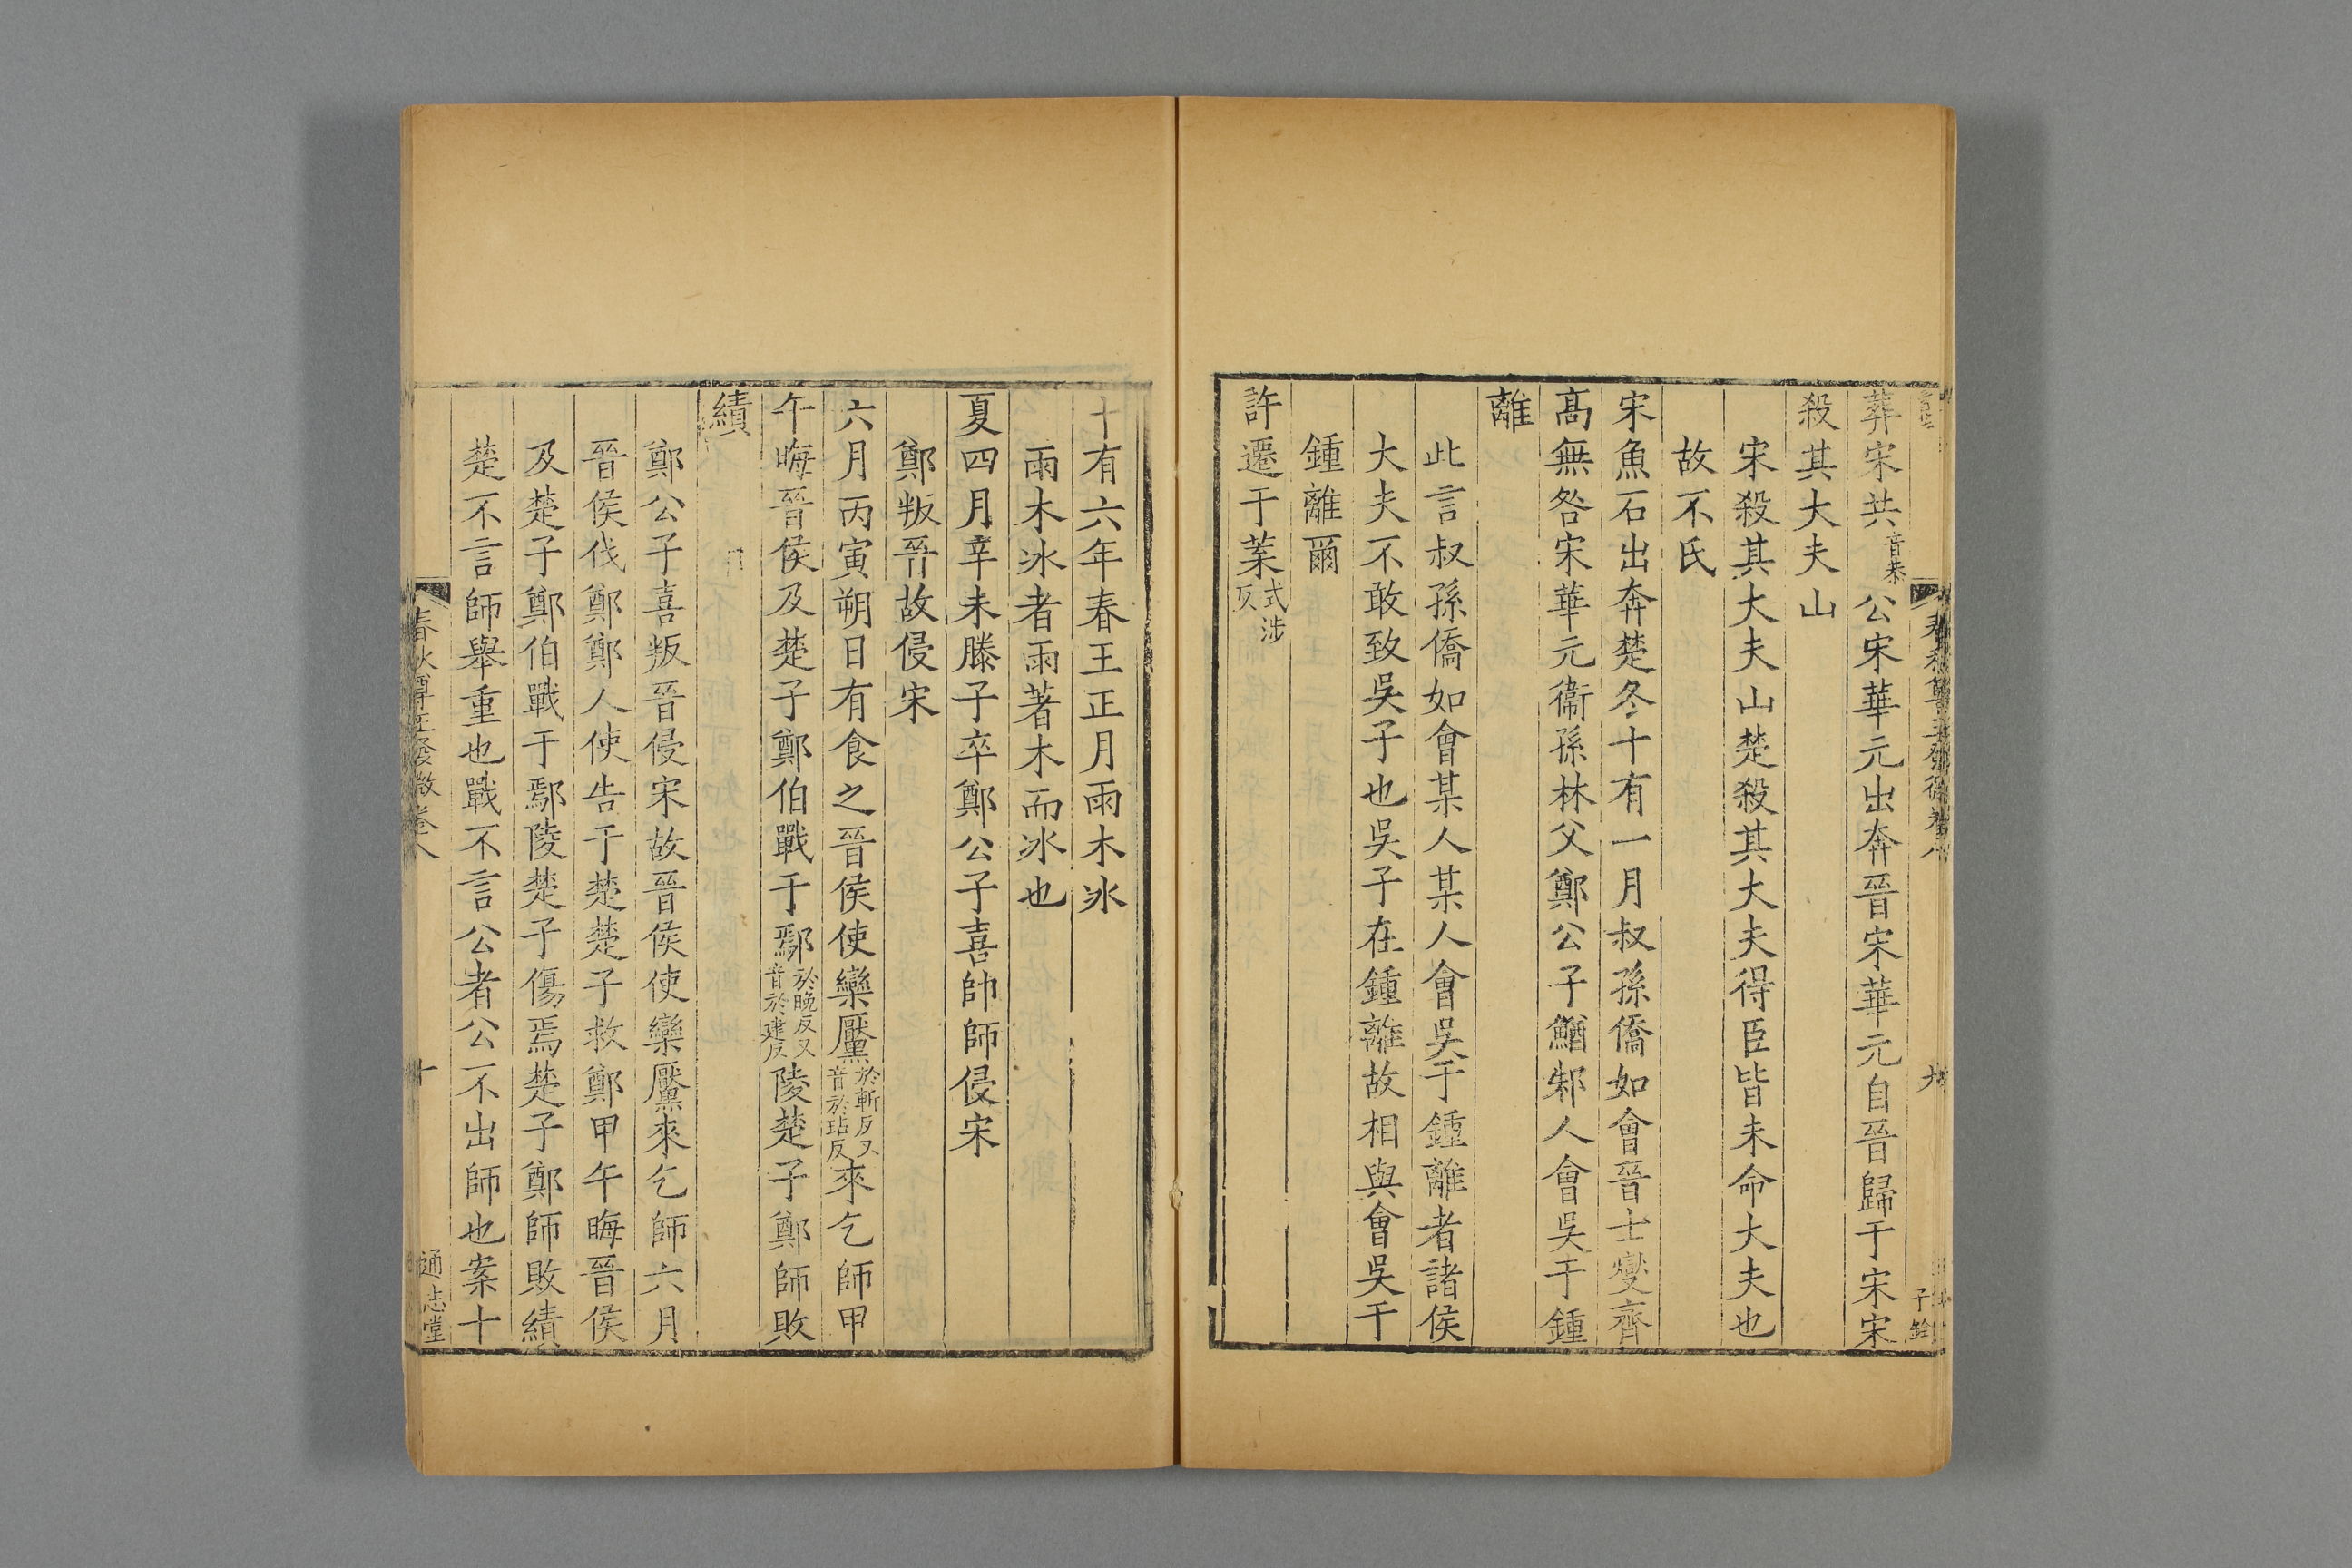 葬宋共音恭公宋華元出奔晉宋華元自晉歸于宋宋
殺其大夫山
宋殺其大夫山楚殺其大夫得臣皆未命大夫也
故不氏
宋魚石出奔楚冬十有一月叔孫僑如會晉士燮齊
高無咎宋華元衞孫林父鄭公子鰌邾人會吳于鍾
離
此言叔孫僑如會某人某人會吳于鍾離者諸侯
大夫不敢致吳子也吳子在鍾離故相與會吳于
鍾離爾
許遷于葉式涉反
十有六年春王正月雨木冰
雨木冰者雨著木而冰也
夏四月辛未滕子卒鄭公子喜帥師侵宋
鄭叛晉故侵宋
六月丙寅朔日有食之晉侯使欒黶於斬反又音於玷反來乞師甲
午晦晉侯及楚子鄭伯戰于鄢於晚反又音於建反陵楚子鄭師敗
績
鄭公子喜叛晉侵宋故晉侯使欒黶來乞師六月
晉侯伐鄭鄭人使告于楚楚子救鄭甲午晦晉侯
及楚子鄭伯戰于鄢陵楚子傷焉楚子鄭師敗績
楚不言師舉重也戰不言公者公不出師也案十
春秋尊王發微卷八
十
通志堂